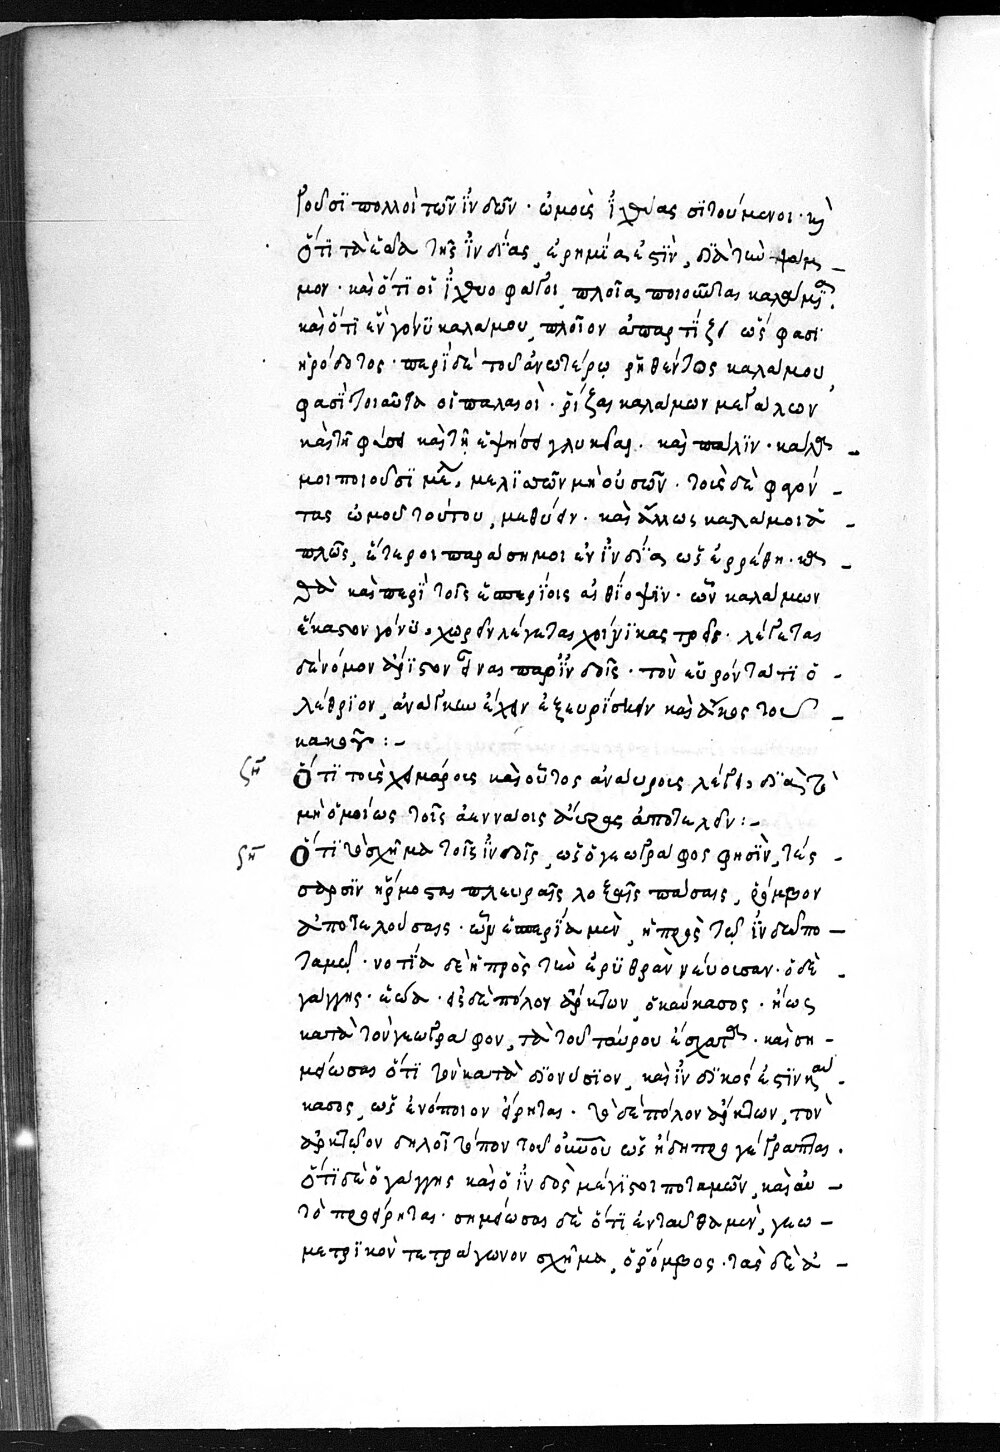 γοῦσϊ πολλοὶ τῶν ϊνδῶν · ὠμοὺς ϊχθύας σϊτούμενοι · κὶ
ὅτι τὰ ἑῷα τῆς ϊνδϊας, ἐρημία ἐστϊν, δϊὰ τὴν ψάμ –
μον · καὶ ὅτϊ οἱ ϊχθυοφάγοι πλοῖα ποιοῦνται καλάμϊνα ·
καὶ ὅτϊ ἓν γόνυ καλάμου, πλοῖον ἀπαρτϊζει ὥς φασι
ἡρόδοτος · περϊ δὲ τοῦ ἀνωτέρω ῥηθέντος καλάμου
φασϊ τοιαῦτα οἱ παλαιοὶ · ῥίζας καλάμων μεγάλων
καὶ τῆ φύσει καὶ τῆ ἑψήσει γλυκείας · καὶ πάλϊν · κάλα –
μοι ποιοῦσϊ μέλι, μελϊσσῶν μὴ οὐσῶν · τοὺς δὲ φαγόν –
τας ὠμοῦ τούτου, μεθύειν · καὶ ἄλλως κάλαμοι ἁ –
πλῶς, ἕτεροι παράσημοι ἐν ϊνδϊα ὡς ἐρρέθη · κα –
θὰ καὶ περϊ τοὺς ἑσπερϊοις αἰθϊοψϊν · ὧν καλάμων
ἕκαστον γόνυ, χωρεῖν λέγεται χοίνϊκας τρεῖς · λέγεται
δὲ νόμον ἄρϊστον εἶναι παρ' ϊνδοῖς · τὸν εὑρόντα τϊ ὀ –
λέθρϊον, ἀνάγκην ἔχειν ἐξευρϊσκειν καὶ ἄκος τοῦ –
κακοῦ : –
ζη ὅτϊ τοὺς χειμάρους καὶ οὗτος ἀνάυρους λέγει, δϊὰ τὸ
μὴ ὁμοίως τοῖς ἀεννάοις αὔρας ἀποτελεῖν : –
ζη ὅτϊ τὸ σχῆμα τοῖς ϊνδοῖς, ὡς ὁ γεωγράφος φησϊν, τέσ –
σαρσϊν ἥρμοσται πλευραῖς λοξαῖς πάσαις, ῥόμβον
ἀποτελούσαις · ὧν ἑσπερϊα μὲν, ἡ πρὸς τῶ ϊνδῶ πο –
ταμῶ · νοτϊα δὲ ἡ πρὸς τὴν ἐρυθρὰν νεύουσαν · ὁ δὲ
γάγγης · ἑῴα · εἰς δὲ πόλον ἄρκτων, ὁ καύκασος · ἤως
κατὰ τὸν γεωγράφον, τὰ τοῦ ταύρου ἔσχατα · καὶ ση –
μείωσαι ὅτϊ τὸν κατὰ δϊονύσϊον, καὶ ϊνδϊκός ἐστϊν καύ –
κασος, ὡς ἐνόποιον εἴρηται · τὸ δὲ πόλον ἄρκτων, τὸν
ἀρκτῶον δηλοῖ τόπον τοῦ οὐνοῦ ὡς ἤδη προγέγραπται ·
ὅτϊ δὲ ὁ γάγγης καὶ ὁ ϊνδὸς μέγϊστοι ποταμῶν, καὶ αὐ –
τὸ προείρηται · σημείωσαι δὲ ὅτϊ ἐνταῦθα μὲν, γεω –
μετρϊκὸν τετράγωνον σχῆμα, ὁ ῥόμβος · τὰς δὲ ἀ –